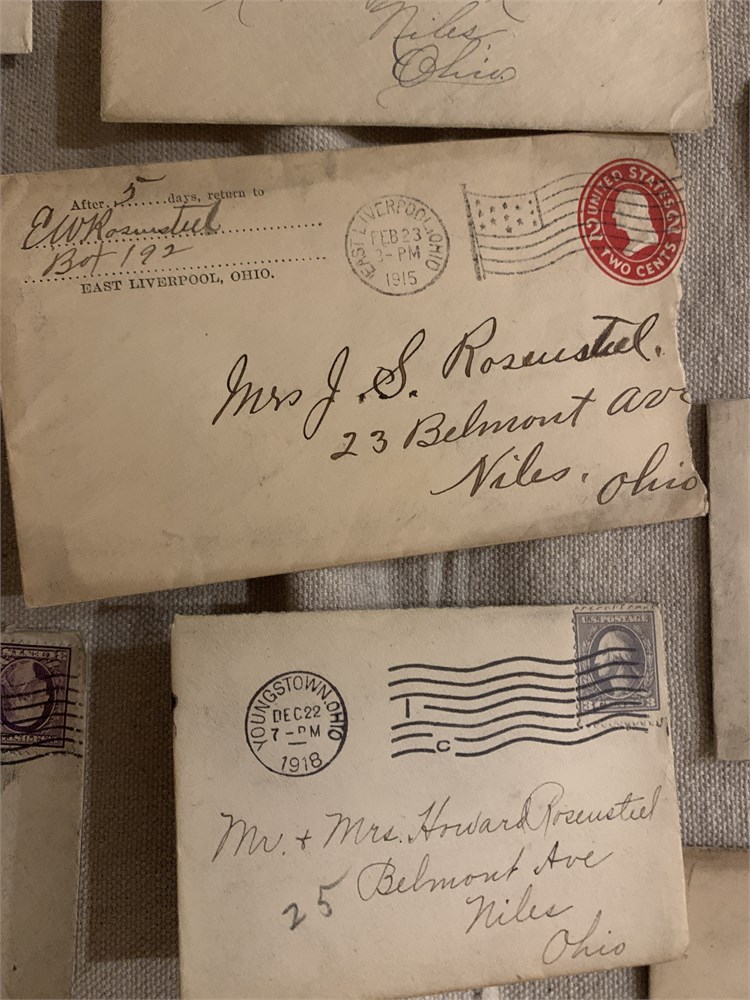 Niles
Ohio
After 5 days, return to
E W Rosensteel
Box 192
EAST LIVERPOOL, OHIO.
EAST LIVERPOOL, OHIO
FEB 23
PM
1915
UNITED STATES
2 2
TWO CENTS
Mrs J. S. Rosensteel.
23 Belmont Ave
Niles, Ohio
U.S. POSTAGE
YOUNGSTOWN, OHIO
DEC 22
7 - PM
1918
I
C
Mr. + Mrs. Howard Rosensteel
25 Belmont Ave
Niles
Ohio